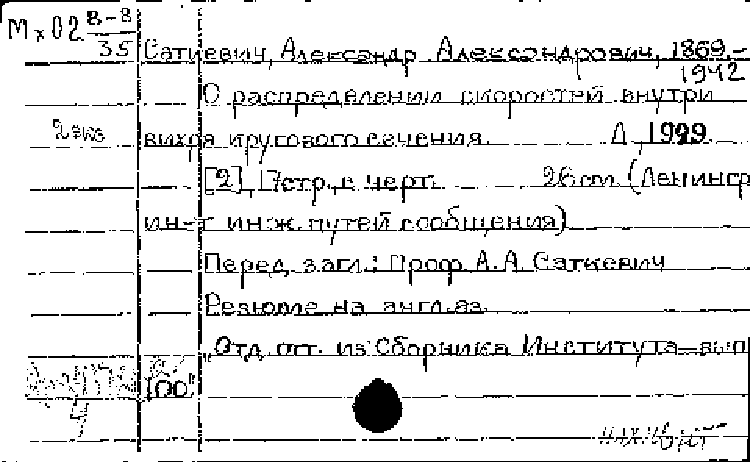 Мх02 В-8
35 Саткевич, Александр Александрович, 1869.-
1942
О распределении скоростей внутри
2 экз вихря кругового сечения. Л. 1929.
[2], 17стр., с черт. 26 cm. (Ленингр
ин-т инж. путей сообщения)
Перед загл.: Проф. А. А. Саткевич
Резюме на англ. яз.
"Отд. отт. из Сборника Института – вып
100"
4